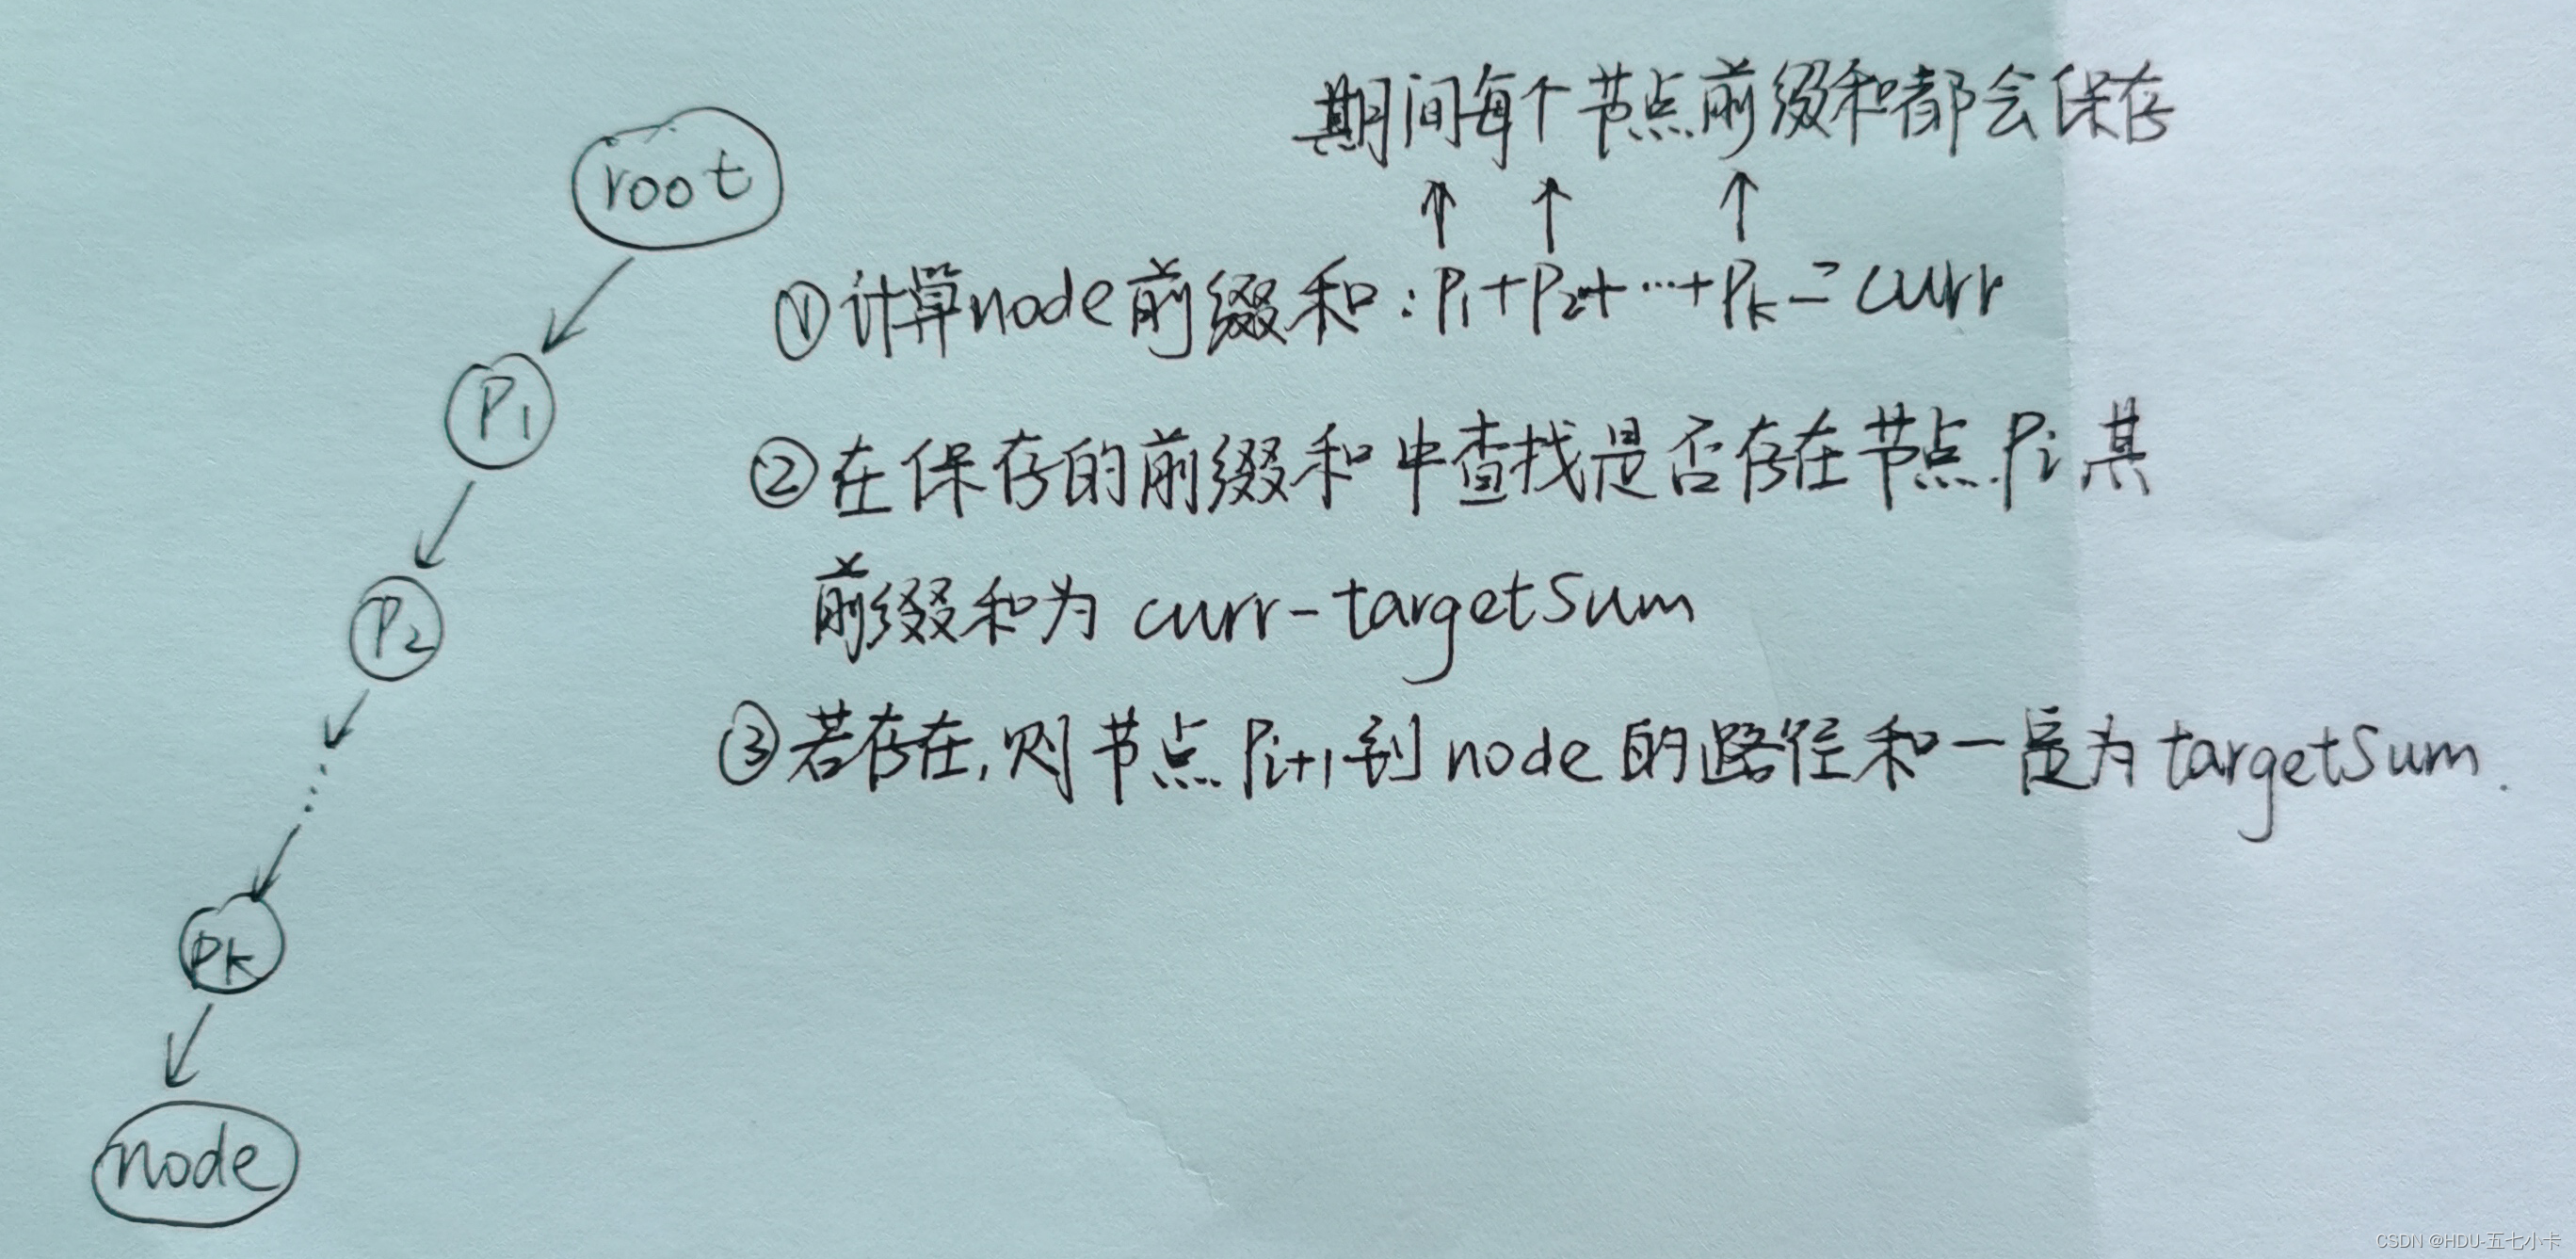 root
期间每个节点前缀和都会保存
↑ ↑ ↑
①计算node前缀和:P1+P2+…+Pk=curr
P1
②在保存的前缀和中查找是否存在节点Pi其
P2
前缀和为 curr-targetSum
③若存在,则节点Pi+1到node的路径和一定为targetSum.
Pk
node
CSDN @HDU-五七小卡